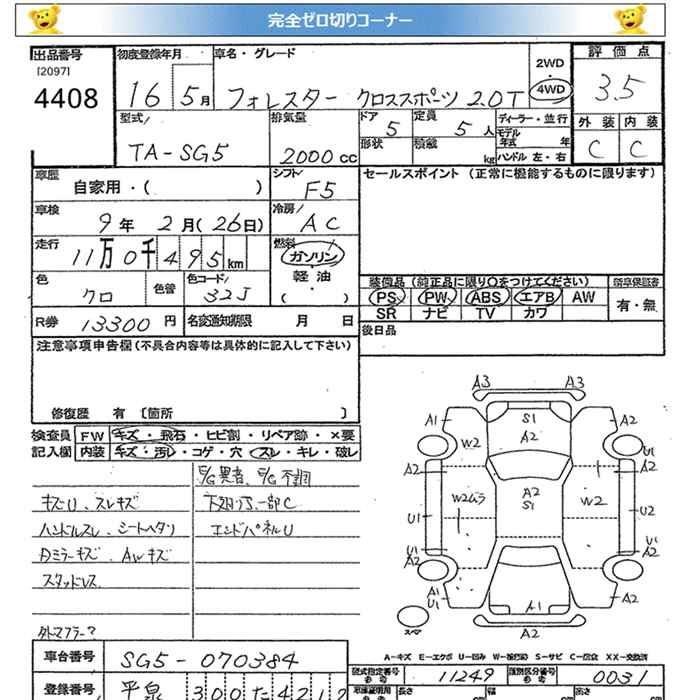 完全ゼロ切りコーナー
出品番号 初度登録年月 車名・グレード 2WD 評価点
[2097]
4408 16 5月 フォレスター クロススポーツ 2.0T 4WD 3.5
型式 排気量 ドア 定員 ディーラー・並行 外装 内装
5 5人 モデル年式 年
TA-SG5 2000cc 形状 積載 kg ハンドル 左・右 C C
車歴 シフト セールスポイント(正常に機能するものに限ります)
自家用・( ) F5
車検 冷房
9年 2月(26日) AC
走行 燃料
11万0千495km ガソリン
色 色替 色コード 軽・油 装備品(純正品に限り○をつけてください) 新車保証書
クロ 32J ( ) PS PW ABS エアB AW 有・無
SR ナビ TV カワ
R券 13300円 名変通知期限 月 日 後日品
注意事項申告欄(不具合内容等は具体的に記入して下さい)
修復歴 有〔箇所 〕
検査員 FW キズ・飛石・ヒビ割・リペア跡・×要
記入欄 内装 キズ・汚レ・コゲ・穴・スレ・キレ・破レ
E/G異音、E/G不調
キズU、スレキズ 下廻りS、一部C
ハンドルスレ、シートヘタリ エンドパネルU
Dミラーキズ、AWキズ
スタッドレス
外トマフラー?
A3 A3
A1 S1 A2
W2 A2 U1
A2 A2
A2
W2ムラ S1 W2
U1 U2
U1 U1
A2 A2
A1
U1 A1 A2
スペア A2
A-キズ E-エクボ U-凹み W-波(板) S-サビ C-腐食 XX-交換済
車台番号 SG5-070384 型式指定番号 11249 類別区分番号 0031
登録番号 平泉 300 た 4217 長さ 幅 高さ